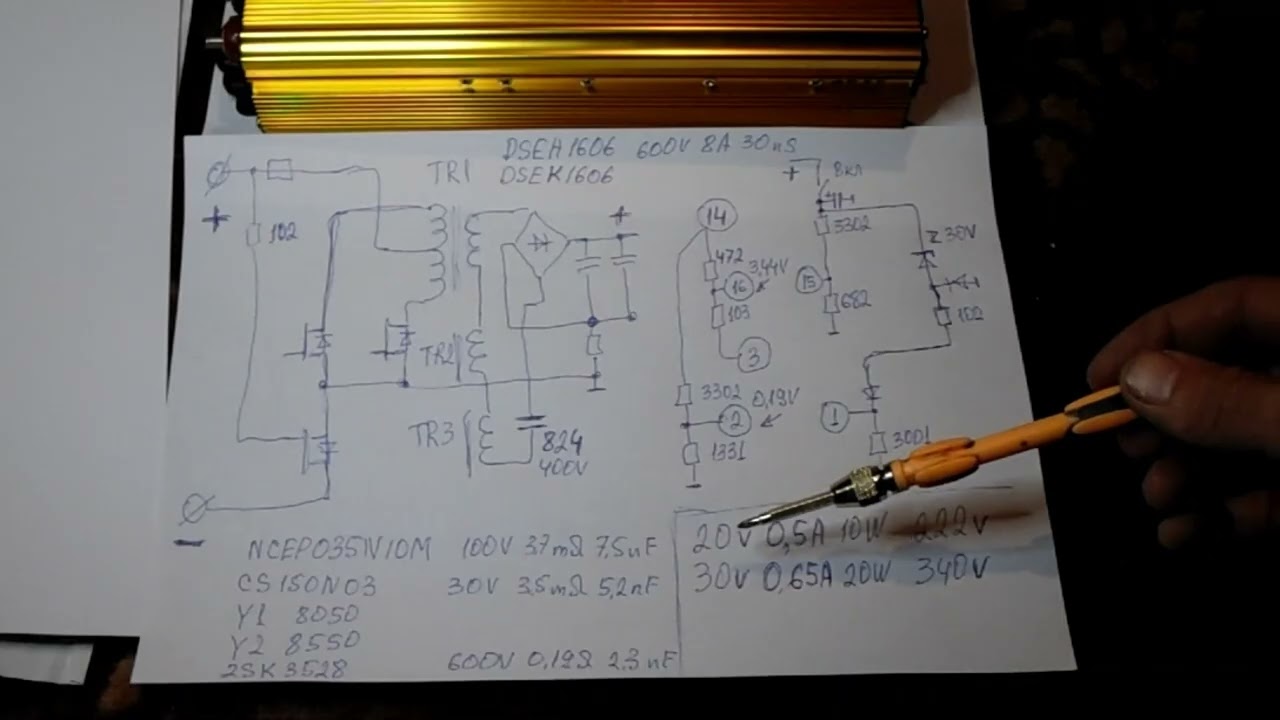 DSEH1606 600V 8A 30nS
DSEK1606
TR1
+
102
TR2
TR3
824
400V
+
14
472
3,44V
16
103
3
3302
0,19V
2
1331
+ 8кл
3302
15
682
Z 30V
102
1
3001
-
NCEP035N10M 100V 3,7mΩ 7,5nF
CS150N03 30V 3,5mΩ 5,2nF
Y1 8050
Y2 8550
2SK3528 600V 0,19Ω 2,3nF
20V 0,5A 10W 222V
30V 0,65A 20W 340V